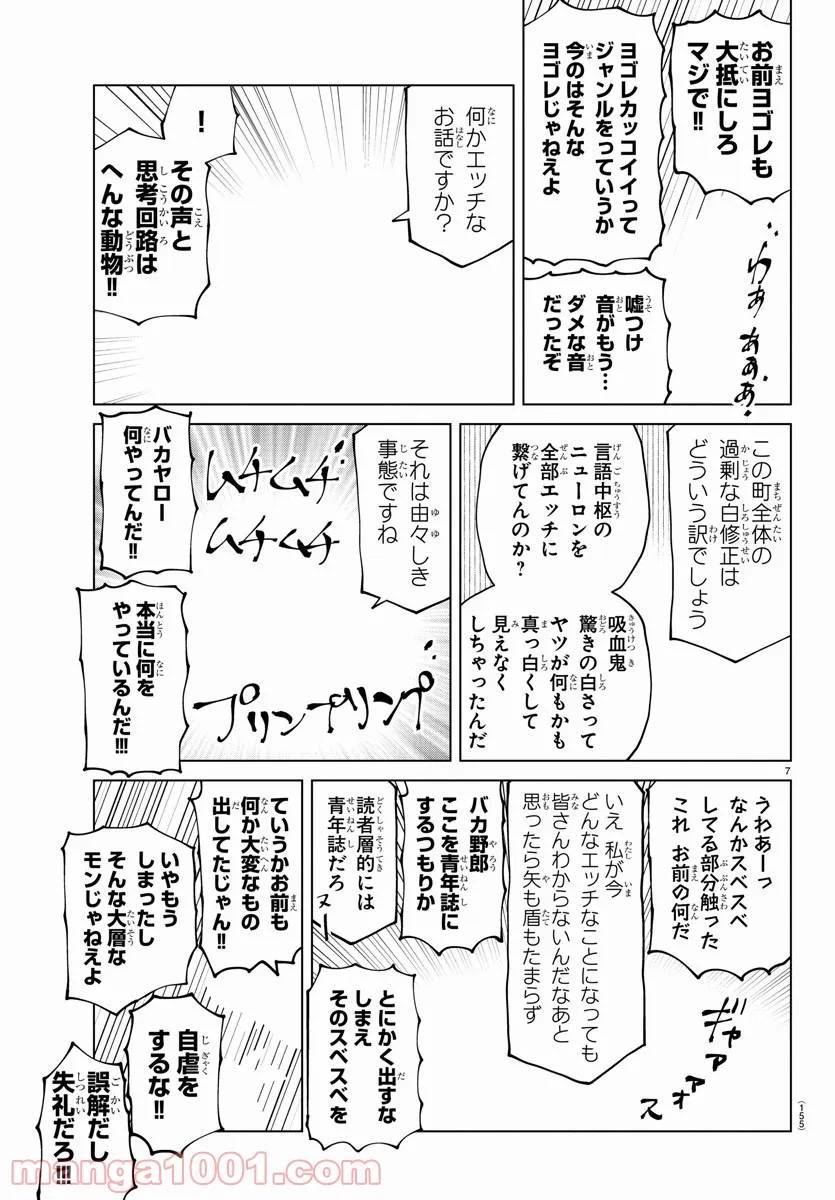 お前ヨゴレも
大抵にしろ
マジで!!
ヨゴレカッコイイって
ジャンルをっていうか
今のはそんな
ヨゴレじゃねえよ
わぁぁぁぁ
嘘つけ
音がもう…
ダメな音
だったぞ
何かエッチな
お話ですか?
!
その声と
思考回路は
へんな動物!!
この町全体の
過剰な白修正は
どういう訳でしょう
言語中枢の
ニューロンを
全部エッチに
繋げてんのか?
吸血鬼
驚きの白さって
ヤツが何もかも
真っ白くして
見えなく
しちゃったんだ
それは由々しき
事態ですね
ムチムチ
ムチムチ
プリンプリンプ
バカヤロー
何やってんだ!!
本当に何を
やっているんだ!!!
7
うわあーっ
なんかスベスベ
してる部分触った
これ お前の何だ
ギャァァァオス
いえ 私が今
どんなエッチなことになっても
皆さんわからないんだなあと
思ったら矢も盾もたまらず
バカ野郎
ここを青年誌に
するつもりか
読者層的には
青年誌だろ
ヌー
とにかく出すな
しまえ
そのスベスベを
ていうかお前も
何か大変なもの
出してたじゃん!!
いやもう
しまったし
そんな大層な
モンじゃねえよ
自虐を
するな!!
誤解だし
失礼だろ!!!
(155)
manga1001.com